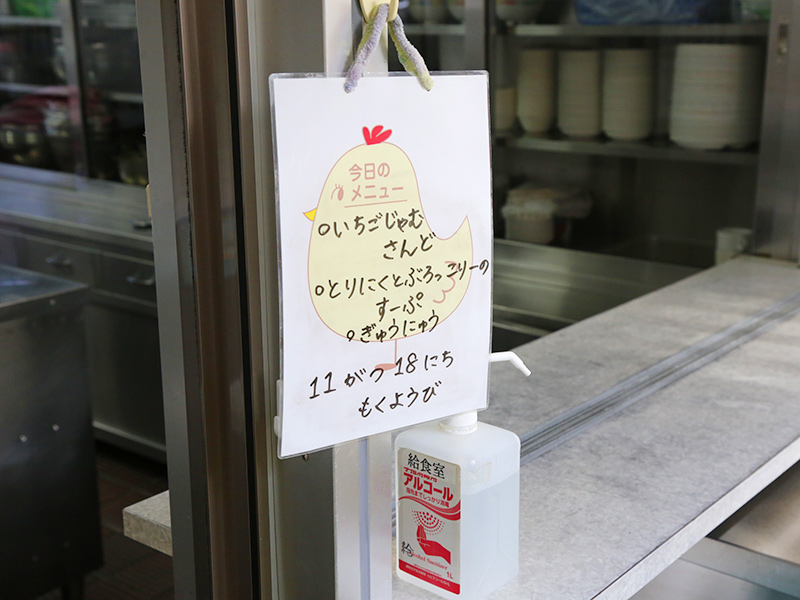 今日の
メニュー
○いちごじゃむ
さんど
○とりにくとぶろっこりーの
すーぷ
○ぎゅうにゅう
11がつ18にち
もくようび
給食室
アルコール
指先までしっかり消毒
Alcohol Sanitizer
1L